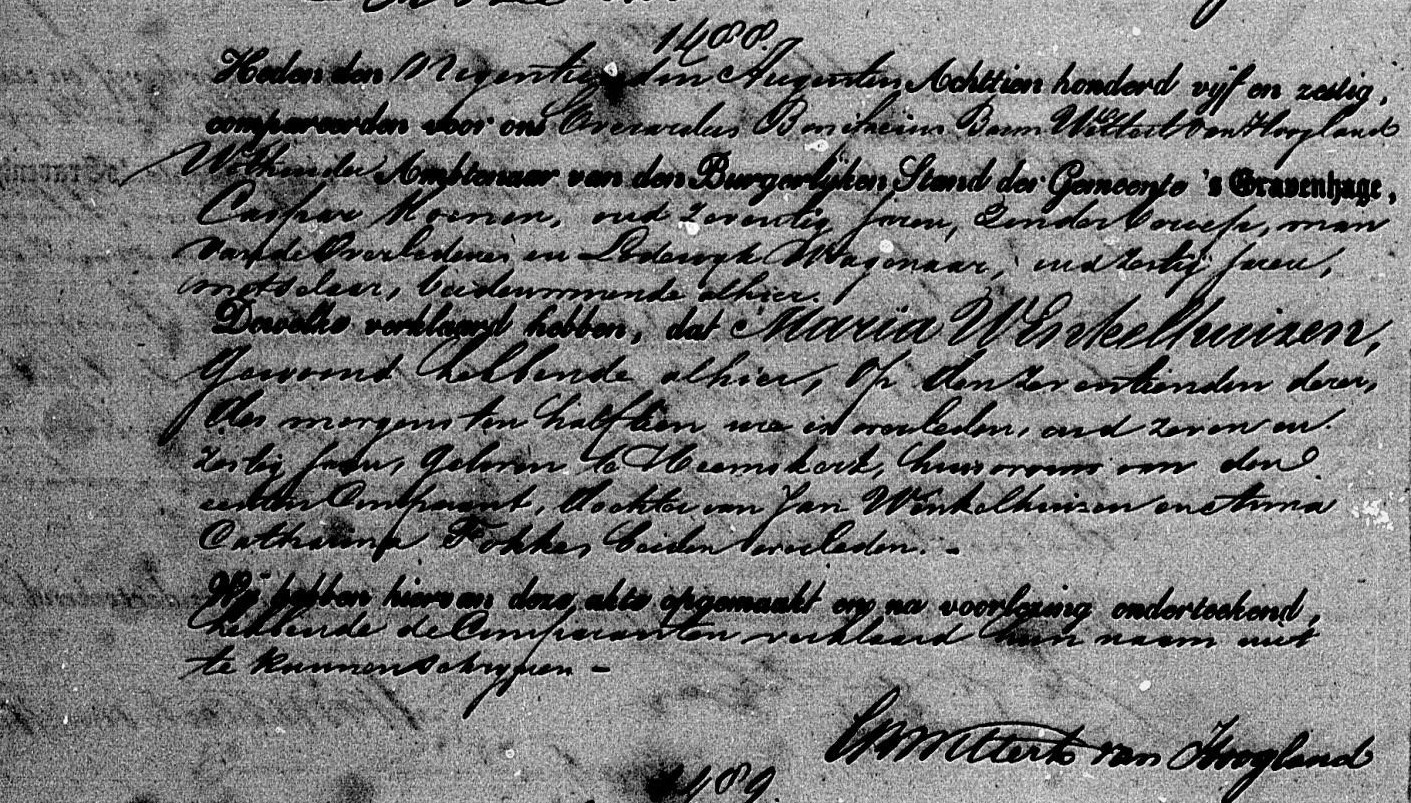 1488.
Heden den Negentienden Augustus, Achttien honderd vijf en zestig,
compareerden voor ons Everardus Bonifacius Wittert van Hoogland
Wethouder Ambtenaar van den Burgerlijken Stand der Gemeente 's Gravenhage,
Caspar Koenen, oud zeventig jaren, zonder beroep, man
van de overledene, en Lodewyk Wagenaar, oud zestig jaren,
metselaar, beide wonende alhier.
Dewelke verklaard hebben, dat Maria Winkelhuizen,
gewoond hebbende alhier, op den zeventienden dezer,
des morgens ten half tien ure is overleden, oud zeven en
zestig jaren, geboren te Heemskerk, huisvrouw van den
eersten Comparant, dochter van Jan Winkelhuizen en Anna
Catharina Fokke, beiden overleden. -
Wij hebben hiervan deze akte opgemaakt en na voorlezing onderteekend,
hebbende de Comparanten verklaard hun naam niet
te kunnen schryven -
Wittert van Hoogland
1489.